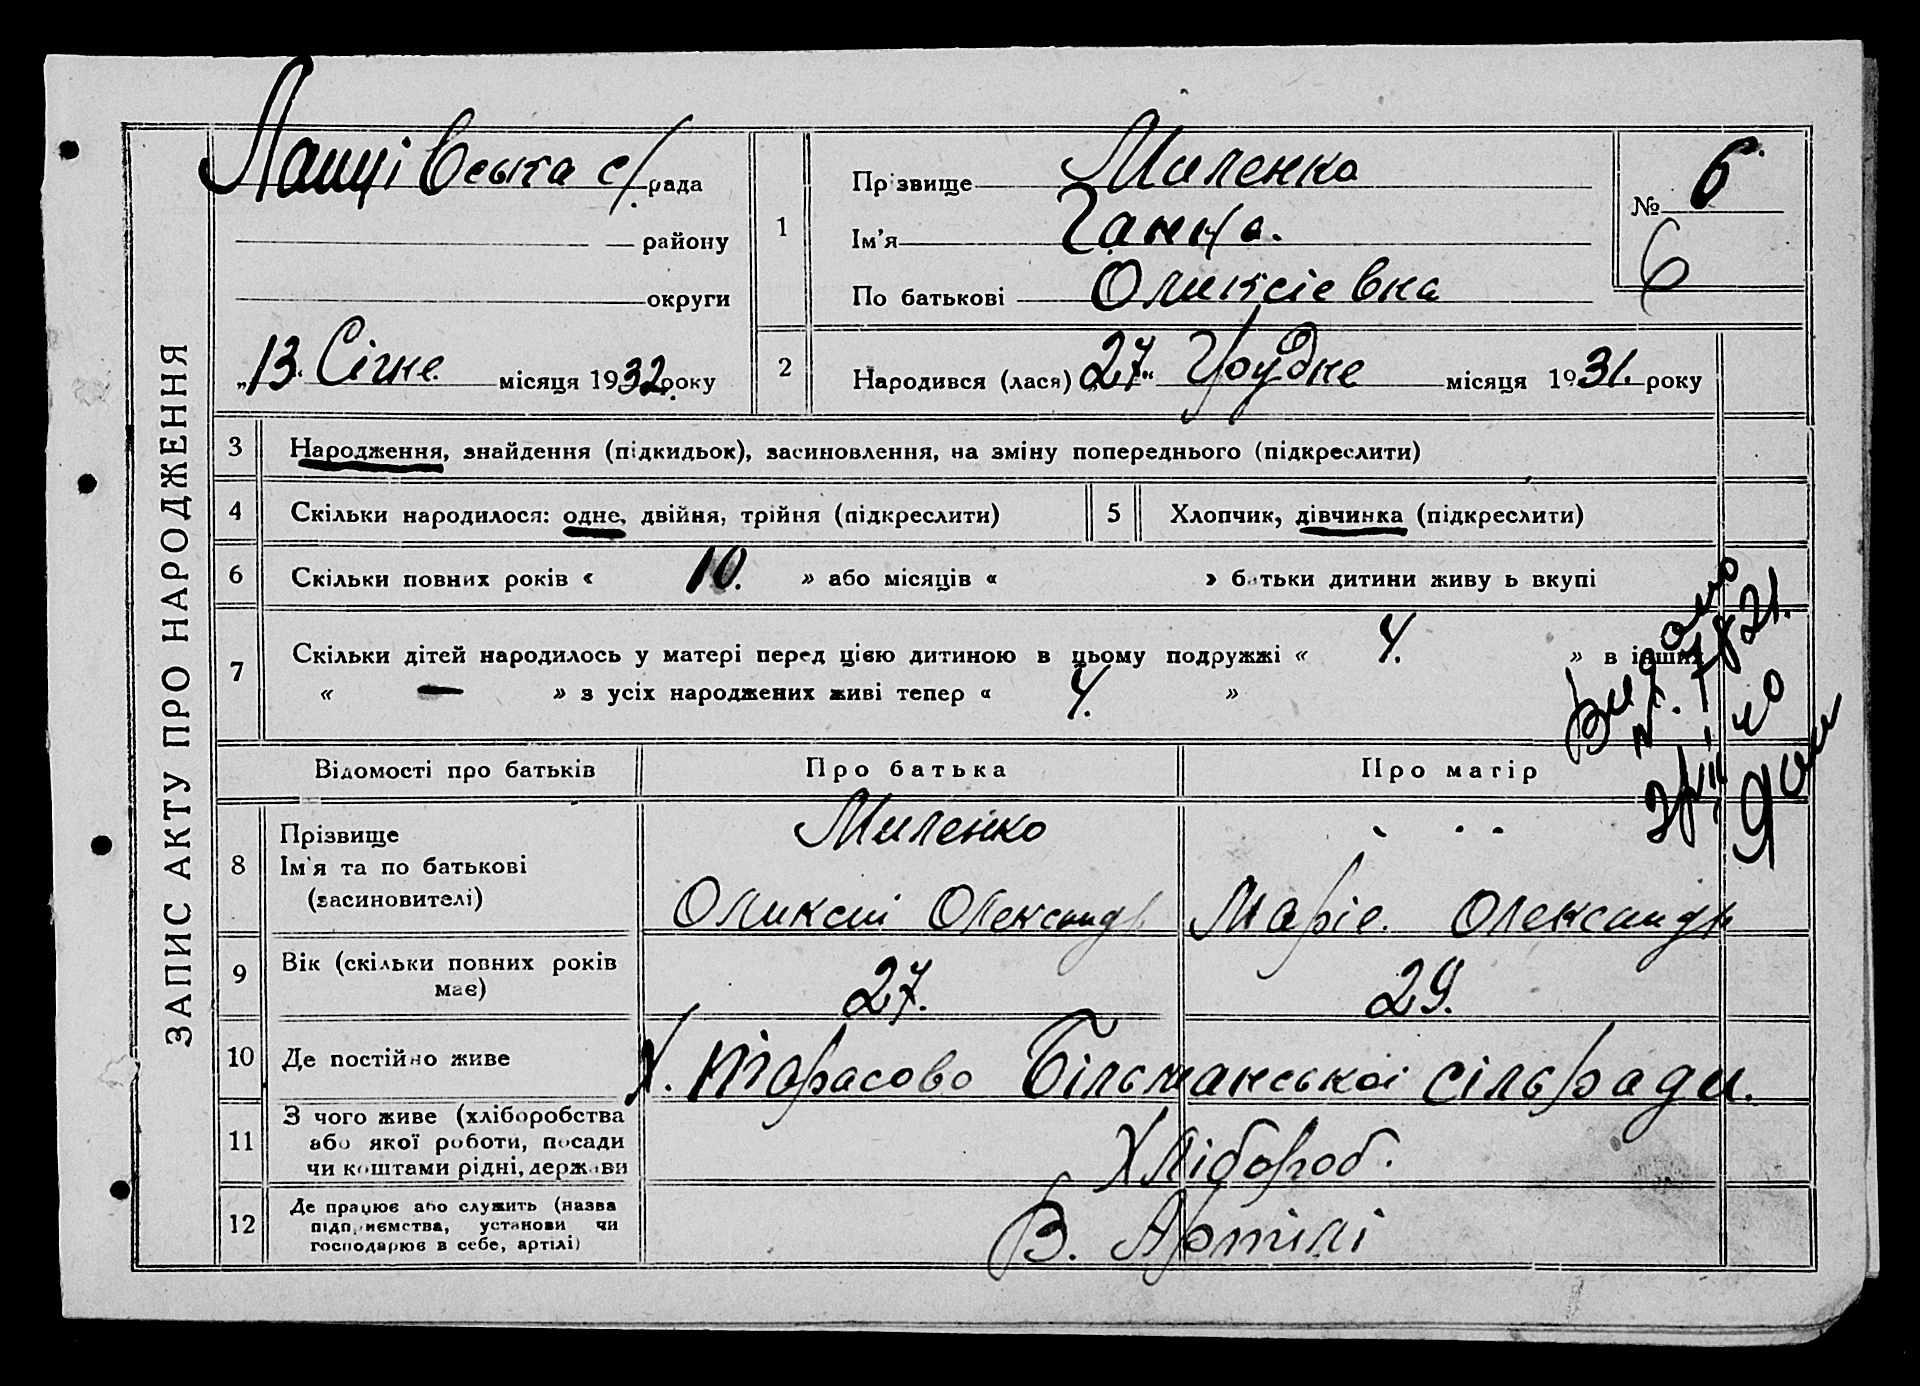 ЗАПИС АКТУ ПРО НАРОДЖЕННЯ
Лащівська с/рада
району
округи
„13. Січне місяця 1932. року
1
Прізвище Миленко
Ім'я Ганна.
По батькові Оликсіевна
№ 6
6
2
Народився (лася) „27“ Грудне місяця 1931. року
3 Народження, знайдення (підкидьок), засиновлення, на зміну попереднього (підкреслити)
4 Скільки народилося: одне, двійня, трійня (підкреслити)
5 Хлопчик, дівчинка (підкреслити)
6 Скільки повних років « 10. » або місяців « » батьки дитини живуть вкупі
7 Скільки дітей народилось у матері перед цією дитиною в цьому подружжі « 4. » в інших
« — » з усіх народжених живі тепер « 4. »
Видано
Відомості про батьків Про батька Про матір
8 Прізвище
Ім'я та по батькові
(засиновителі)
Миленко
Оликсій Олександр
" "
Маріе. Олександр
9 Вік (скільки повних років має)
27. 29.
10 Де постійно живе
Х. Тарасово Більманської сільради.
11 З чого живе (хліборобства
або якої роботи, посади
чи коштами рідні, держави
Хлібороб.
12 Де працює або служить (назва
підприємства, установи чи
господарює в себе, артілі)
В. Артілі